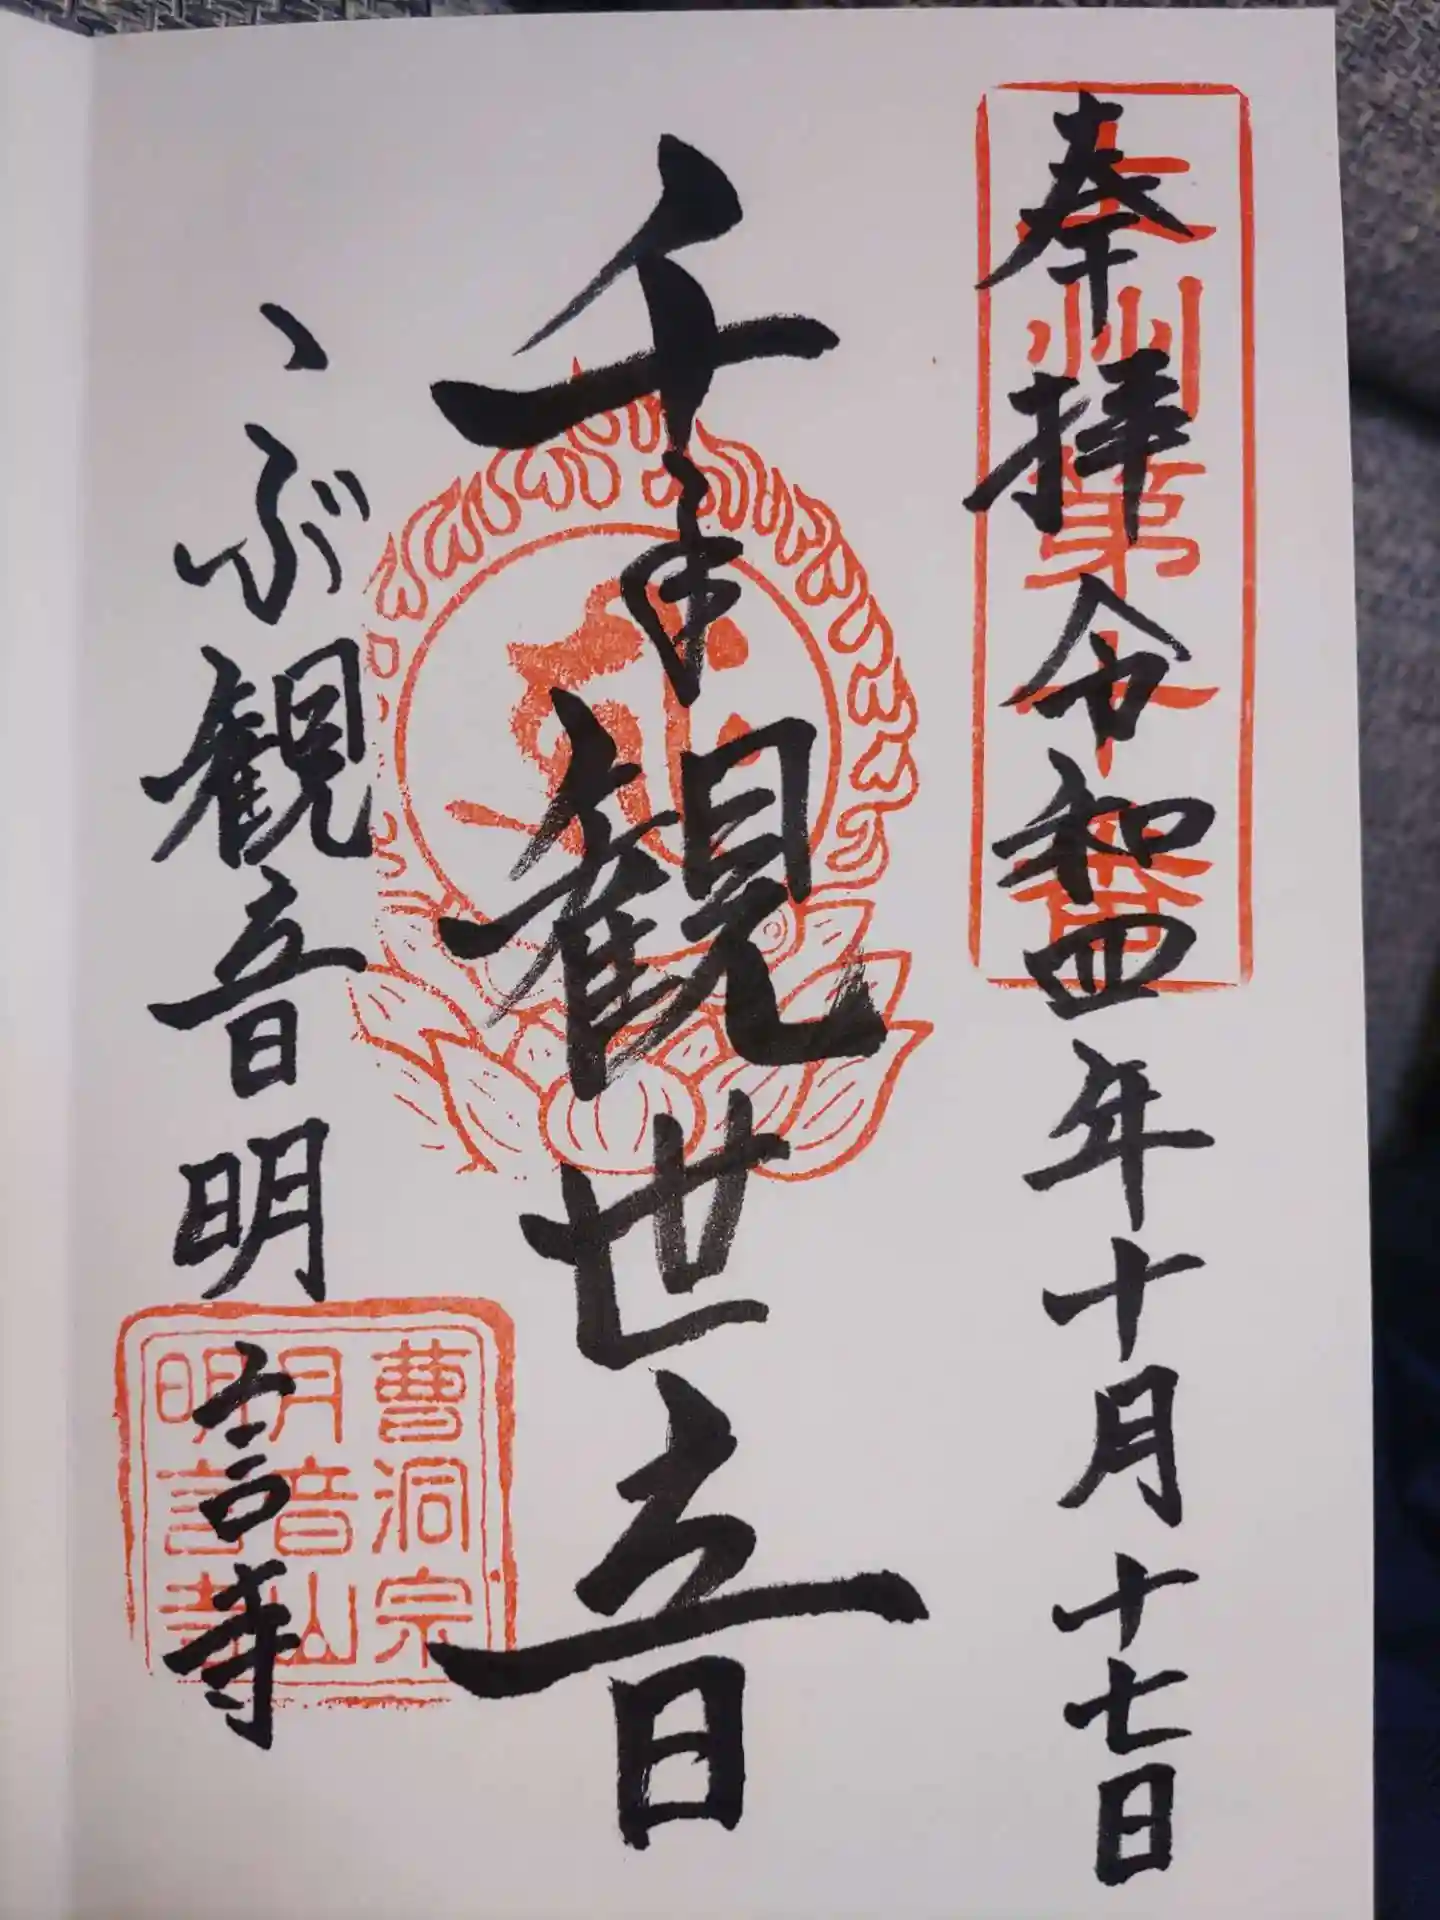 奉拝 令和四年十月十七日
上州第十番
千手観世音
こぶ観音明言寺
曹洞宗
月音山
明言寺